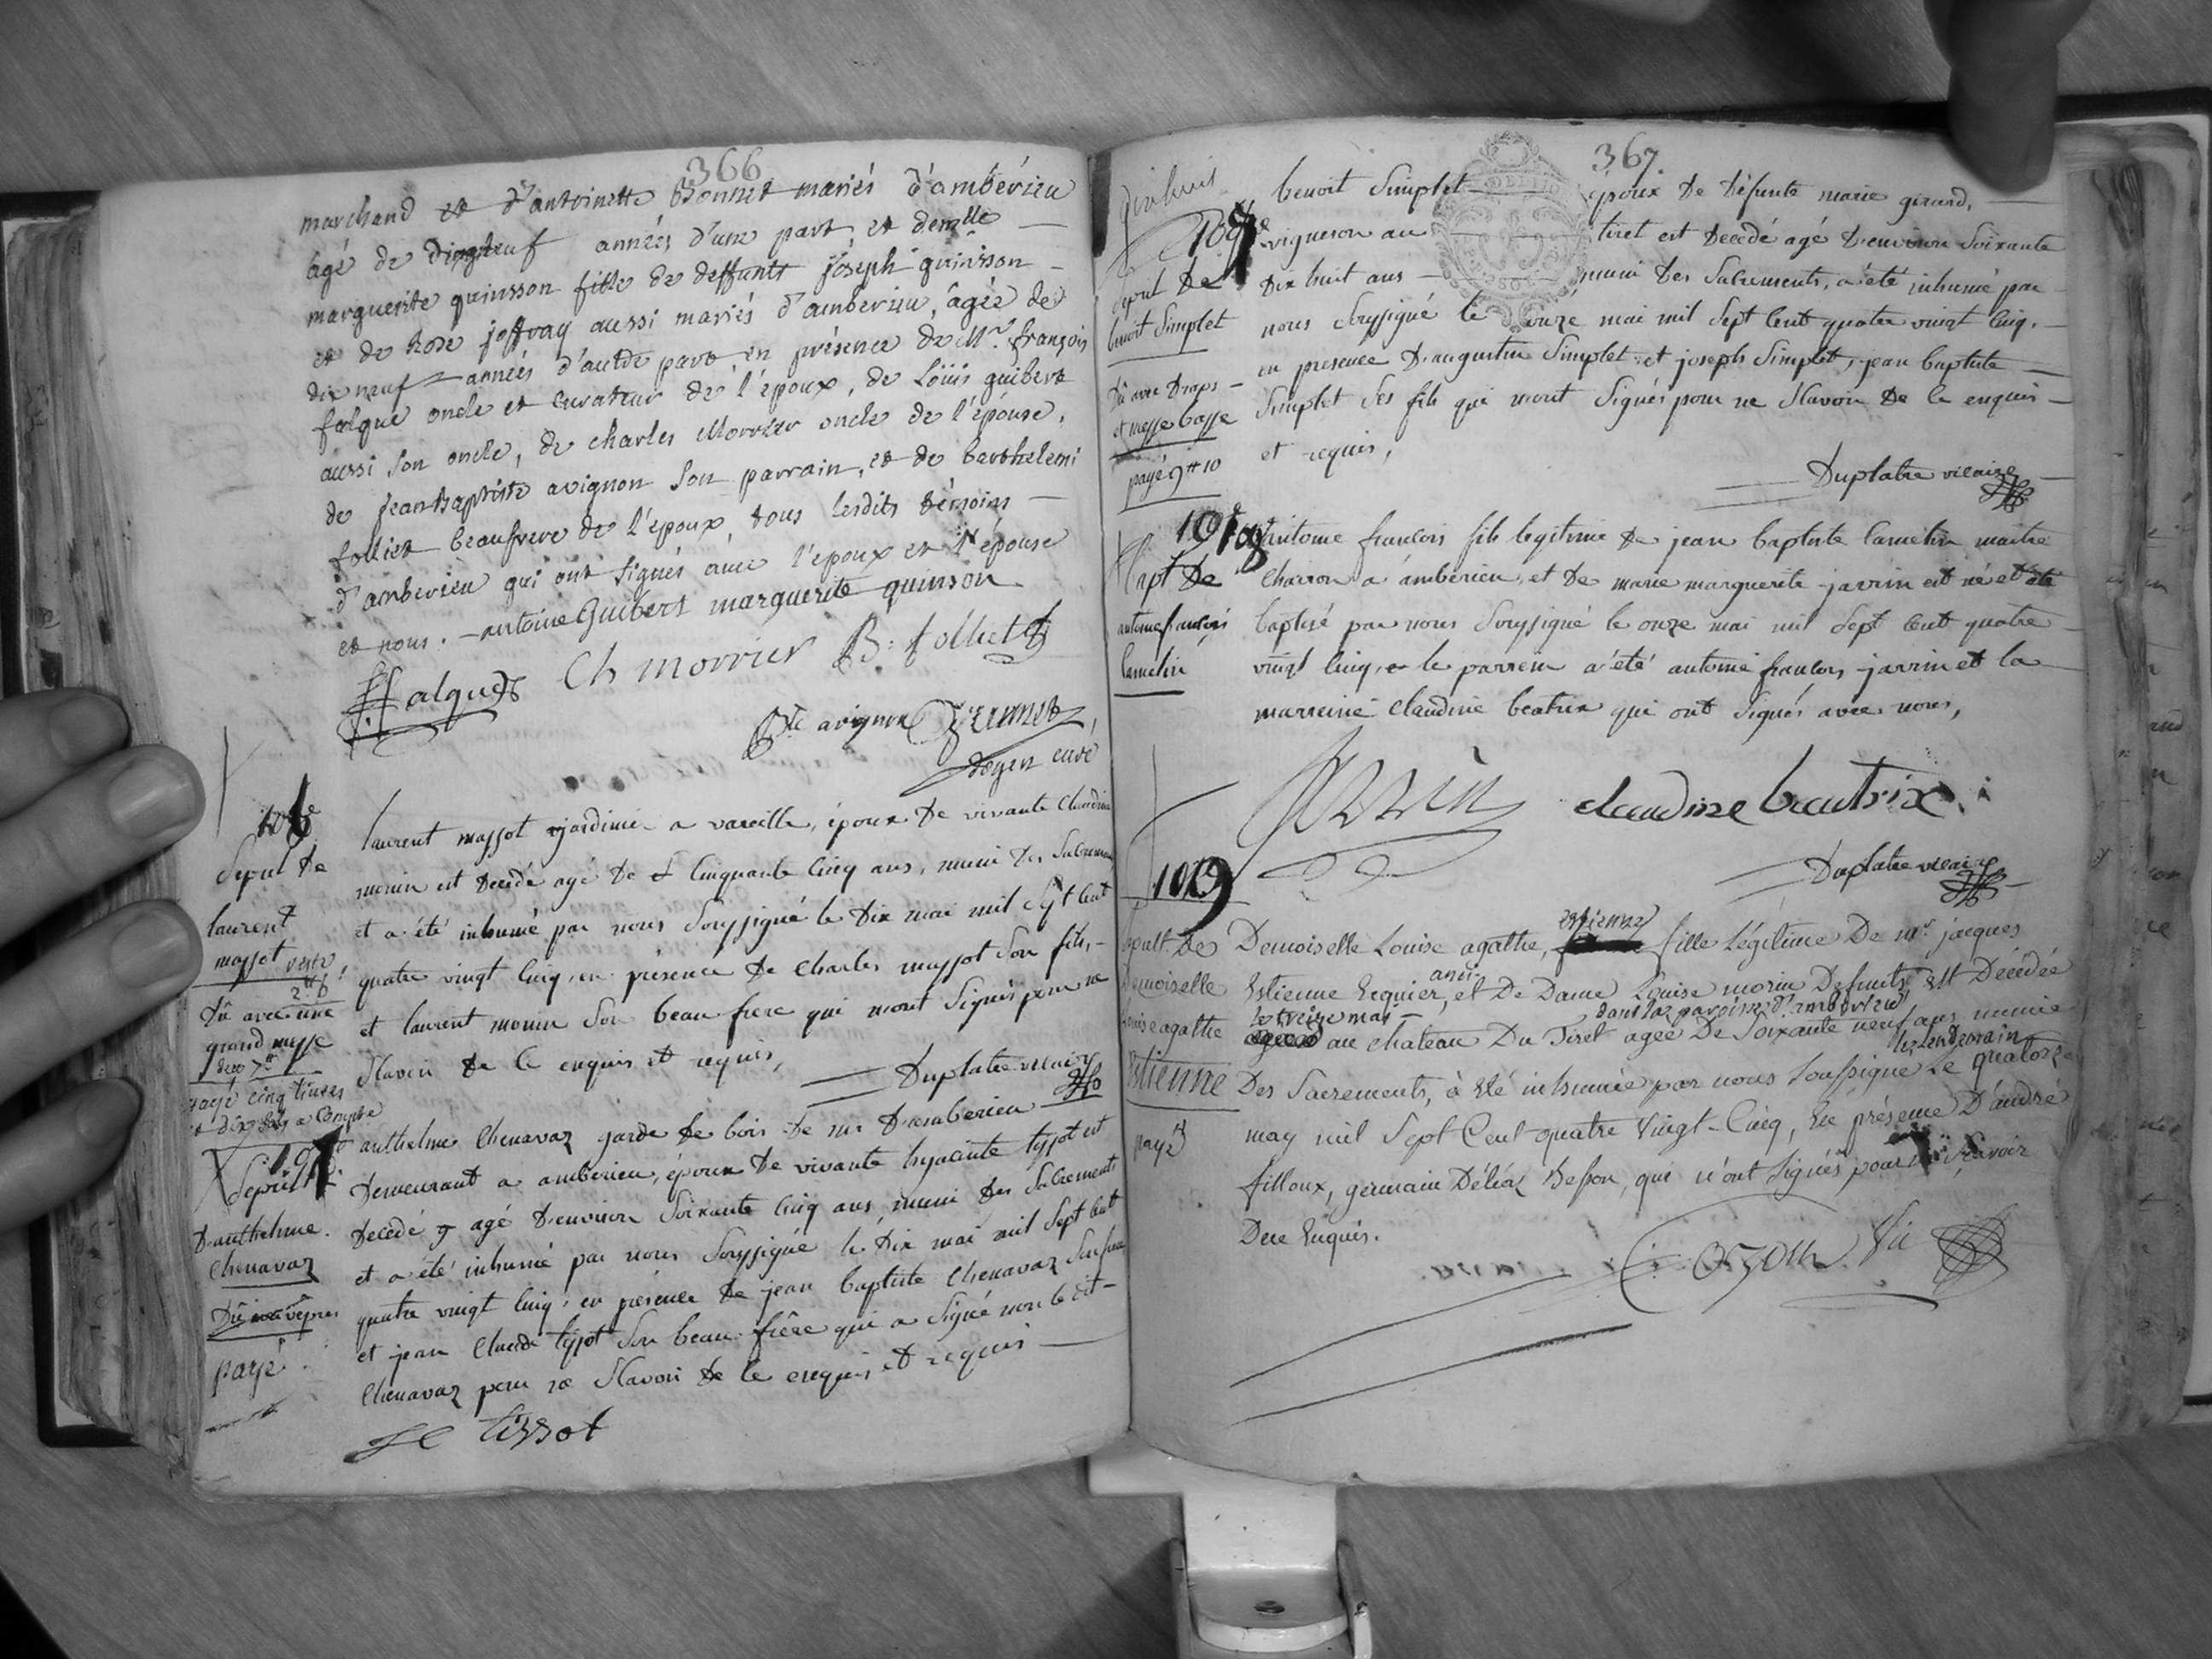 366
marchand et d'antoinette Bonnet mariés d'ambérieu
âgé de dixneuf années d'une part et demelle
marguerite quinsson fille de deffunts joseph quinsson
et de Rose joffray aussi mariés d'amberieu, âgée de
dix neuf années d'autre part en présence de Mr. françois
falque oncle et curateur de l'époux, de Loüis guibert
aussi son oncle, de charles Morrier oncle de l'épouse,
de jean Baptiste avignon son parrain, et de berthelemi
folliet beaufrere de l'époux, tous lesdits témoins
d'amberieu qui ont signés avec l'époux et l'épouse
et nous. antoine Guibert marguerite quinson
falque Ch morrier B. folliet
Bte avignon
doyen curé
106
Sepul de
laurent
massot
dû avec une
grand messe
payé cinq livres
et dix sols a compte
laurent massot jardinier a vareille, époux de vivante Claudine
monin est decedé agé de cinquante cinq ans, muni des Sacremens
et a été inhumé par nous soussigné le dix mai mil sept cent
quatre vingt cinq, en présence de Charles massot son fils,
et laurent monin son beau frere qui n'ont signés pour ne
sçavoir de ce enquis et requis,
Duplatre vicaire
Sepult
d'anthelme
Chenavaz
vêpres
payé
anthelme Chenavaz garde de bois de mr D'amberieu
demeurant a amberieu, époux de vivante hyacinte tissot est
decedé agé d'environ soixante cinq ans muni des Sacrements
et a été inhumé par nous soussigné le dix mai mil sept cent
quatre vingt cinq, en présence de jean baptiste Chenavaz son frere
et jean Claude tissot son beau frère qui a signé non le dit
Chenavaz pour ne sçavoir de ce enquis et requis
JC tissot
367.
Sepul de
benoit Simplet
dû avec draps
et messe basse
payé 9# 10
benoit Simplet époux de défunte marie girard,
vigneron au tiret est decedé agé d'environ soixante
dix huit ans muni des Sacrements, a été inhumé par
nous soussigné le onze mai mil sept cent quatre vingt cinq,
en presence d'augustin Simplet et joseph Simplet, jean baptiste
Simplet ses fils qui n'ont signés pour ne sçavoir de ce enquis
et requis,
Duplatre vicaire
108
Bapt de
antoine françois
lamelin
antoine françois fils legitime de jean baptiste lamelin maitre
charron a ambérieu, et de marie marguerite jarrin est né et été
baptisé par nous soussigné le onze mai mil sept cent quatre
vingt cinq, le parrein a été antoine françois jarrin et la
marreine Claudine beatrix qui ont signés avec nous,
Jarrin claudine beatrix
Duplatre vicaire
109
Sepult. de
Demoiselle
Louise agathe
Estienne
payé
estienne
Demoiselle Louise agathe, fille Légitime De mr. jacques
Estienne Ecquier, et De Dame Louise morin Defunts Est Décédée
le treize mai dans la paroisse d'amberieu
au chateau Du Tiret agée De Soixante neuf ans munie
le lendemain
Des Sacrements, à Eté inhumée par nous soussigné Le quatorze
may mil Sept Cent quatre Vingt-Cinq, En présence D'andré
filloux, germain Déléaz Besson, qui n'ont Signés pour Sçavoir
Dece Enquis.
Cozon Vic